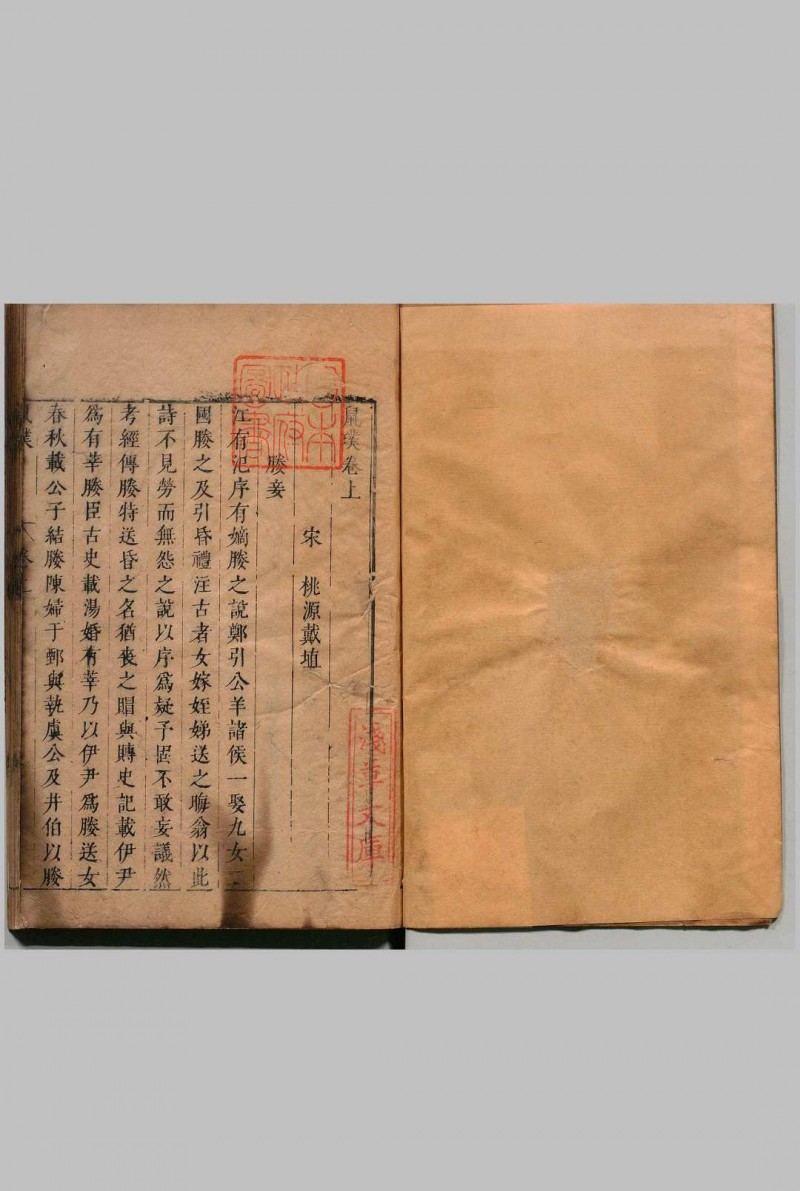 鼠璞卷上
宋　桃源戴埴
媵妾
江有汜序有嫡媵之說鄭引公羊諸侯一娶九女二
國媵之及引昏禮注古者女嫁姪娣送之晦翁以此
詩不見勞而無怨之說以序爲疑予固不敢妄議然
考經傳媵特送昏之名猶喪之賵與賻史記載伊尹
爲有莘媵臣古史載湯婚有莘乃以伊尹爲媵送女
春秋載公子結媵陳婦于鄄與執虞公及井伯以媵
鼠璞
卷上
日本政府圖書
淺草文庫